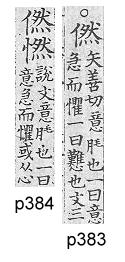 ○㒄
矢善切意脃也一曰意
急而懼一曰難也文三
p383
㒄㦓
說文意脃也一曰
意急而懼或从心
p384